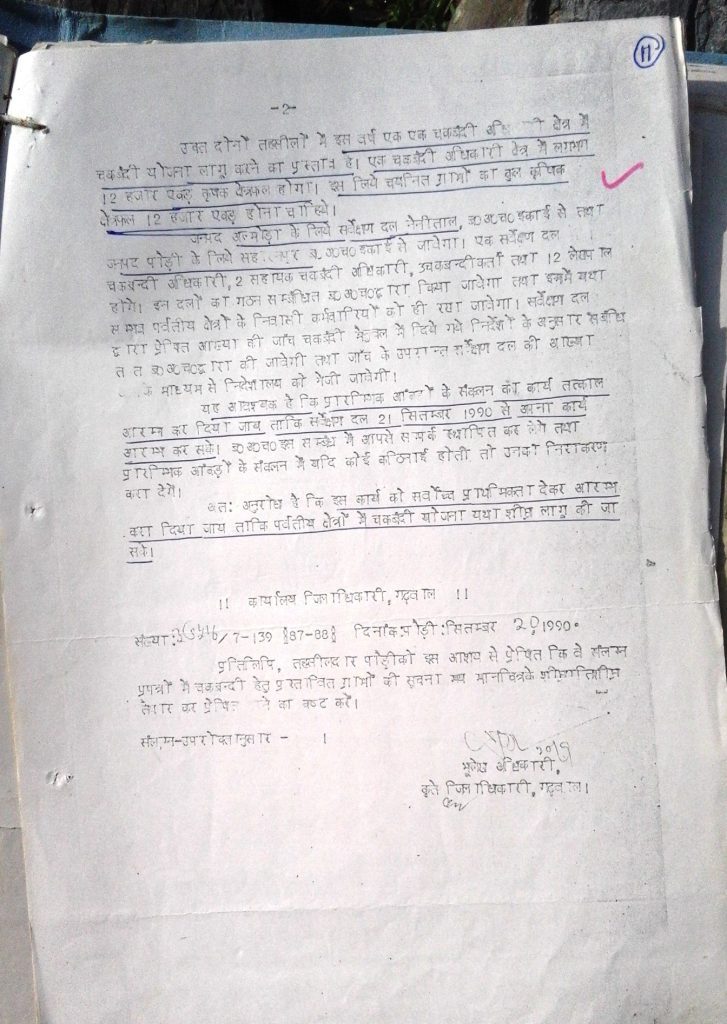 11
-2-
उक्त दोनों तहसीलों में इस वर्ष एक एक चकबंदी क्षेत्र में
चकबंदी योजना लागू करने का प्रस्ताव है। एक चकबंदी अधिकारी क्षेत्र में लगभग
12 हजार एकड़ कृषक क्षेत्रफल होगा। इस लिये चयनित ग्रामों का कुल कृषिक
क्षेत्रफल 12 हजार एकड़ होना चाहिये।
जनपद अल्मोड़ा के लिये सर्वेक्षण दल नैनीताल, ब0अ0च0 इकाई से तथा
जनपद पौड़ी के लिये ब0अ0च0इकाई से जावेगा। एक सर्वेक्षण दल
चकबन्दी अधिकारी, 2 सहायक चकबंदी अधिकारी, तथा 12
होंगे। इन दलों का गठन सम्बंधित ब0अ0च0द्वारा किया जावेगा तथा इनमें यथा
सम्भव पर्वतीय क्षेत्रों के निवासी कर्मचारियों को ही रखा जावेगा। सर्वेक्षण दल
द्वारा प्रेषित आख्या की जाँच चकबंदी में दिये गये निर्देशों के अनुसार
ब0अ0च0द्वारा की जावेगी तथा जाँच के उपरान्त सर्वेक्षण दल की आख्या
के माध्यम से निदेशालय को भेजी जावेगी।
यह आवश्यक है कि प्रारम्भिक आंकड़ों के संकलन का कार्य तत्काल
आरम्भ कर दिया जाय ताकि सर्वेक्षण दल 21 सितम्बर 1990 से अपना कार्य
आरम्भ कर सके। ब0अ0च0 इस सम्बंध में आपसे सम्पर्क स्थापित कर लेंगे तथा
प्रारम्भिक आंकड़ों के संकलन में यदि कोई कठिनाई होती तो उनका निराकरण
करा देंगे।
अत: अनुरोध है कि इस कार्य को सर्वोच्च प्राथमिकता देकर आरम्भ
करा दिया जाय ताकि पर्वतीय क्षेत्रों में चकबंदी योजना यथा शीघ्र लागू की जा
सके।
।। कार्यालय जिलाधिकारी, गढ़वाल ।।
संख्या: /7-139 [87-88] दिनांक:पौड़ी:सितम्बर 20, 1990.
प्रतिलिपि, तहसीलदार पौड़ीको इस आशय से प्रेषित कि वे संलग्न
प्रपत्रों में चकबन्दी हेतु प्रस्तावित ग्रामों की सूचना मय मानचित्रके
तैयार कर का कष्ट करें।
संलग्न-उपरोक्तानुसार - ।
भूलेख अधिकारी,
कृते जिलाधिकारी, गढ़वाल।